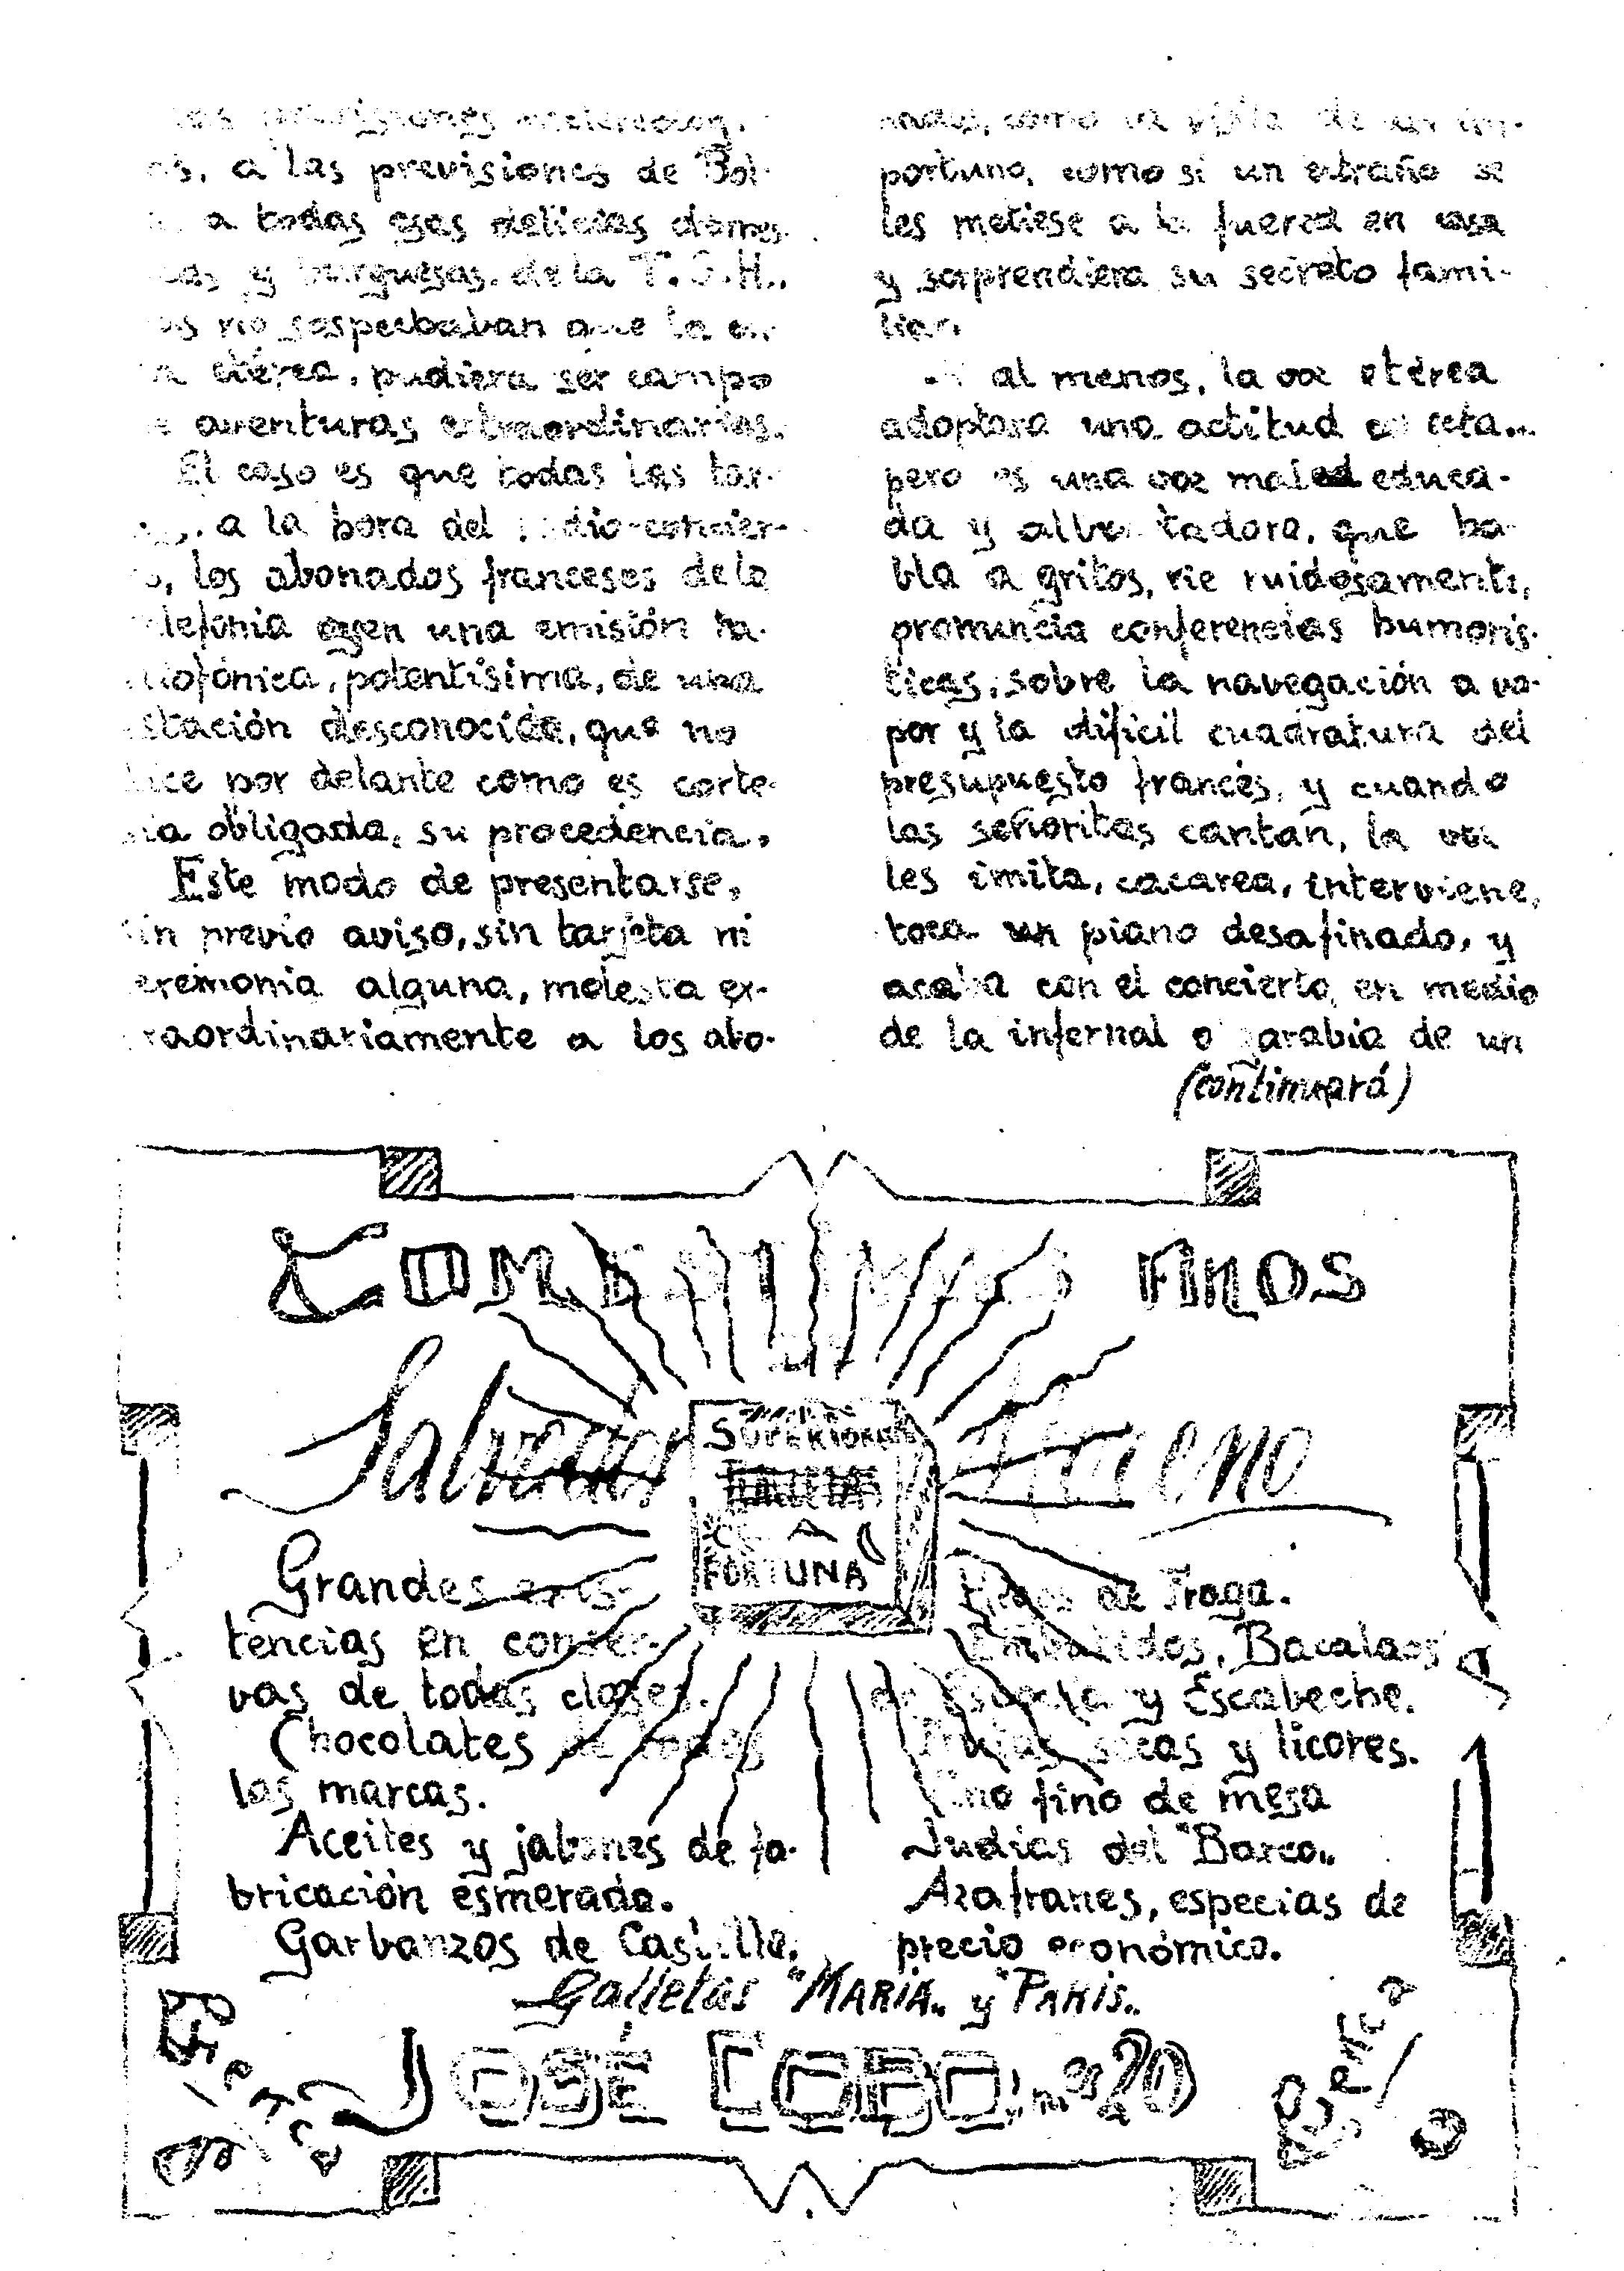 a las previsiones de Bol-
a todas esas delicias domés-
y burguesas de la T.S.H.,
no sospechaban que la
etérea, pudiera ser campo
aventuras extraordinarias.
El caso es que todas las tar-
a la hora del radio-concier-
to, los abonados franceses de la
telefonía oyen una emisión ra-
diofónica, potentísima, de una
estación desconocida, que no
dice por delante como es corte-
sía obligada, su procedencia.
Este modo de presentarse,
sin previo aviso, sin tarjeta ni
ceremonia alguna, molesta ex-
traordinariamente a los abo-
nados, como la visita de un im-
portuno, como si un extraño se
les metiese a la fuerza en casa
y sorprendiera su secreto fami-
liar.
al menos, la voz etérea
adoptara una actitud
pero es una voz mal educa-
da y alborotadora, que ha-
bla a gritos, rie ruidosamente,
pronuncia conferencias humorís-
ticas, sobre la navegación a va-
por y la difícil cuadratura del
presupuesto francés, y cuando
las señoritas cantan, la voz
les imita, cacarea, interviene,
toca un piano desafinado, y
acaba con el concierto en medio
de la infernal algarabia de un
(continuará)
COMESTIBLES FINOS
Salvador
SUPERIORES
GALLETAS
LA
FORTUNA
Grandes exis-
tencias en conser-
vas de todas clases.
Chocolates de todas
las marcas.
Aceites y jabones de fa-
bricación esmerada.
Garbanzos de Castilla.
Higos de Fraga.
Embutidos, Bacalaos
de Escocia y Escabeche.
Frutas secas y licores.
Vino fino de mesa
Judias del "Barco„
Azafranes, especias de
precio económico.
Galletas "MARIA„ y "PARIS„
JOSÉ COBO, nº 20